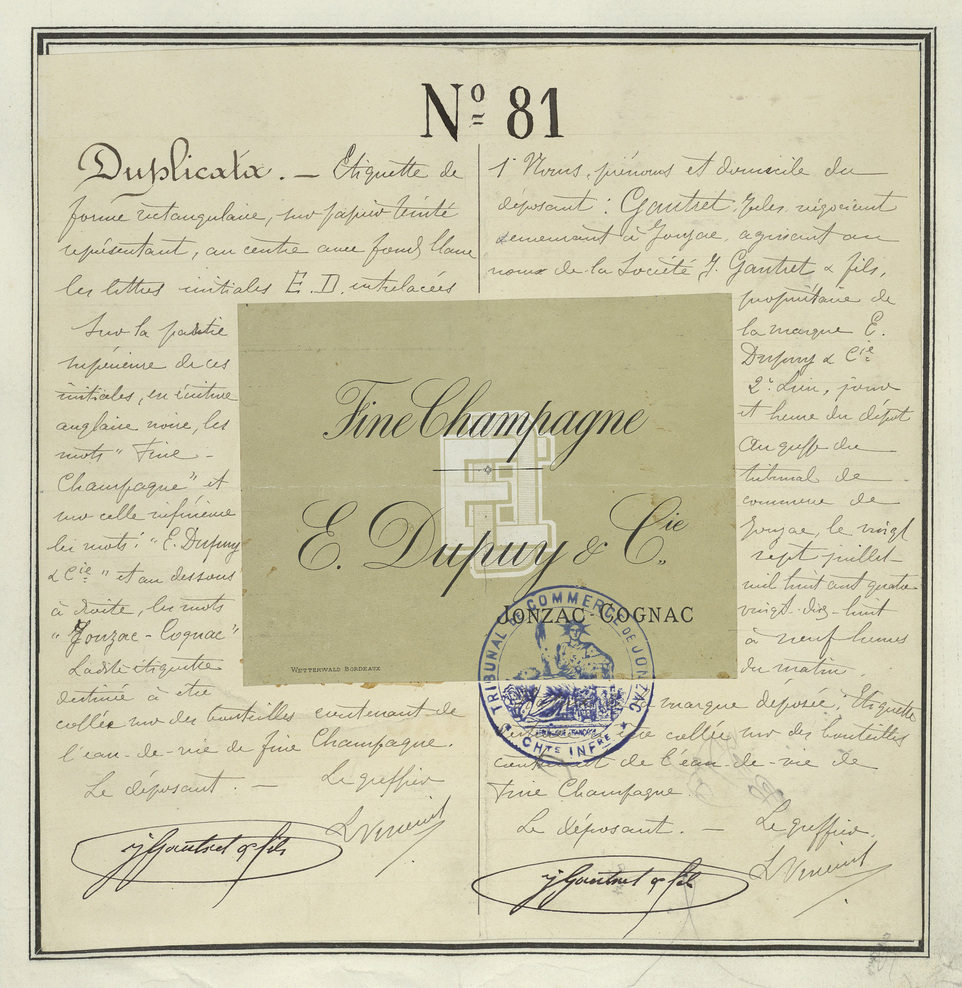 Nº 81
Duplicata. — Etiquette de
forme rectangulaire, sur papier teinté
représentant, au centre avec fond blanc
les lettres initiales E. D. entrelacées
Sur la partie
supérieure de ces
initiales, en écriture
anglaise noire, les
mots " Fine -
Champagne " et
sur celle inférieure
les mots: " E. Dupuy
& Cie " et au dessous
à droite, les mots
" Jonzac - Cognac "
Ladite étiquette
destinée à être
collée sur des bouteilles contenant de
l'eau-de-vie de fine Champagne.
Le déposant. — Le greffier
J Gautret & fils
L Vincent
1° Noms, prénoms et domicile du
déposant : Gautret, Jules, négociant
demeurant à Jonzac, agissant au
nom de la Société J. Gautret & fils,
propriétaire de
la marque E.
Dupuy & Cie
2° Lieu, jour
et heure du dépôt
Au greffe du
tribunal de
commerce de
Jonzac, le vingt
sept juillet
mil huit cent quatre
vingt-dix-huit
à neuf heures
du matin.
marque déposée; Etiquette
collée sur des bouteilles
de l'eau-de-vie de
Fine Champagne.
Le déposant. — Le greffier.
J Gautret & fils
L Vincent
Fine Champagne
E. Dupuy & Cie.
JONZAC-COGNAC
WETTERWALD BORDEAUX
TRIBUNAL DE COMMERCE DE JONZAC
RÉPUBLIQUE FRANÇAISE
* CHTE INFRE *